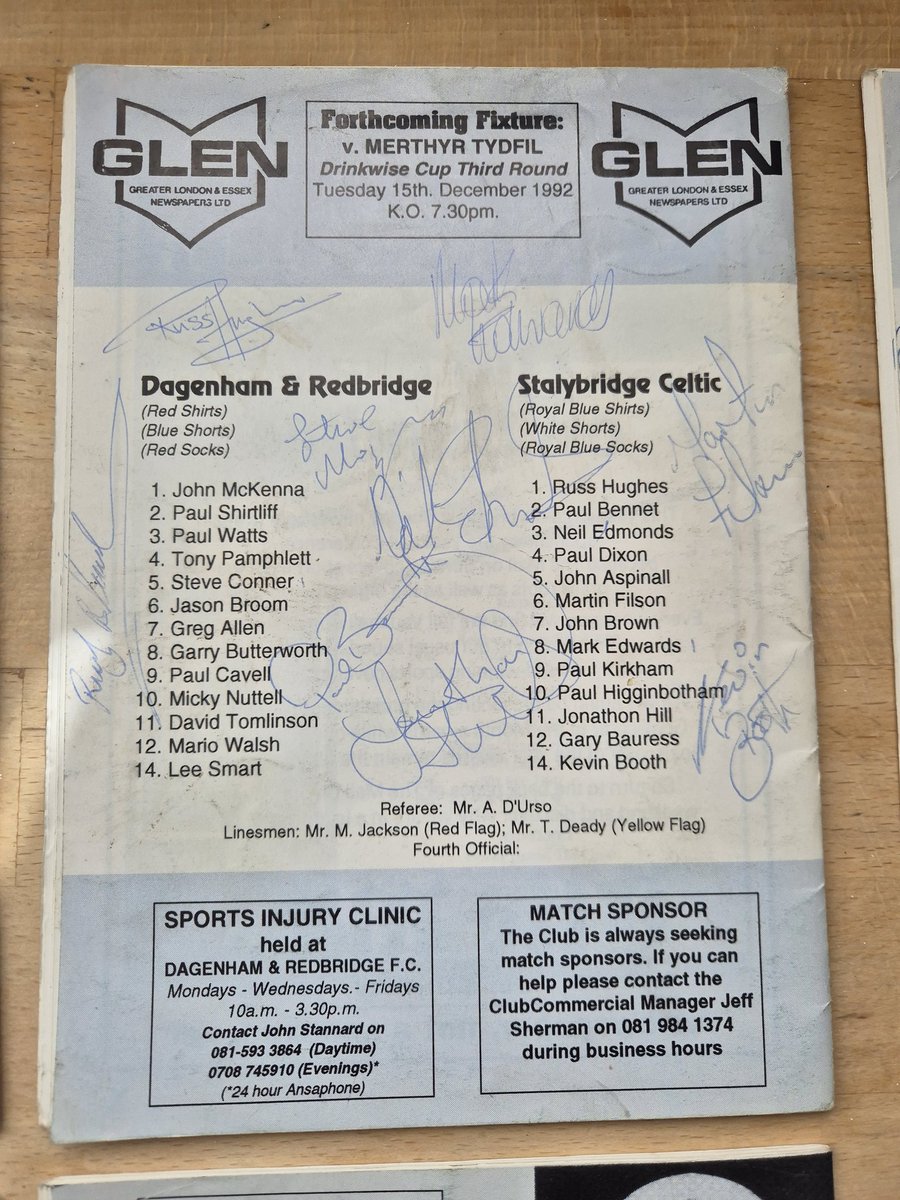 GLEN
GREATER LONDON & ESSEX
NEWSPAPERS LTD
Forthcoming Fixture:
v. MERTHYR TYDFIL
Drinkwise Cup Third Round
Tuesday 15th. December 1992
K.O. 7.30pm.
GLEN
GREATER LONDON & ESSEX
NEWSPAPERS LTD
Russ Hughes
Mark Edwards
Dagenham & Redbridge
(Red Shirts)
(Blue Shorts)
(Red Socks)
1. John McKenna
2. Paul Shirtliff
3. Paul Watts
4. Tony Pamphlett
5. Steve Conner
6. Jason Broom
7. Greg Allen
8. Garry Butterworth
9. Paul Cavell
10. Micky Nuttell
11. David Tomlinson
12. Mario Walsh
14. Lee Smart
Steve
Paul
Jonathan
Hill
Stalybridge Celtic
(Royal Blue Shirts)
(White Shorts)
(Royal Blue Socks)
1. Russ Hughes
2. Paul Bennet
3. Neil Edmonds
4. Paul Dixon
5. John Aspinall
6. Martin Filson
7. John Brown
8. Mark Edwards
9. Paul Kirkham
10. Paul Higginbotham
11. Jonathon Hill
12. Gary Bauress
14. Kevin Booth
Martin
Filson
Kevin
Booth
Referee: Mr. A. D'Urso
Linesmen: Mr. M. Jackson (Red Flag); Mr. T. Deady (Yellow Flag)
Fourth Official:
SPORTS INJURY CLINIC
held at
DAGENHAM & REDBRIDGE F.C.
Mondays - Wednesdays.- Fridays
10a.m. - 3.30p.m.
Contact John Stannard on
081-593 3864 (Daytime)
0708 745910 (Evenings)*
(*24 hour Ansaphone)
MATCH SPONSOR
The Club is always seeking
match sponsors. If you can
help please contact the
ClubCommercial Manager Jeff
Sherman on 081 984 1374
during business hours